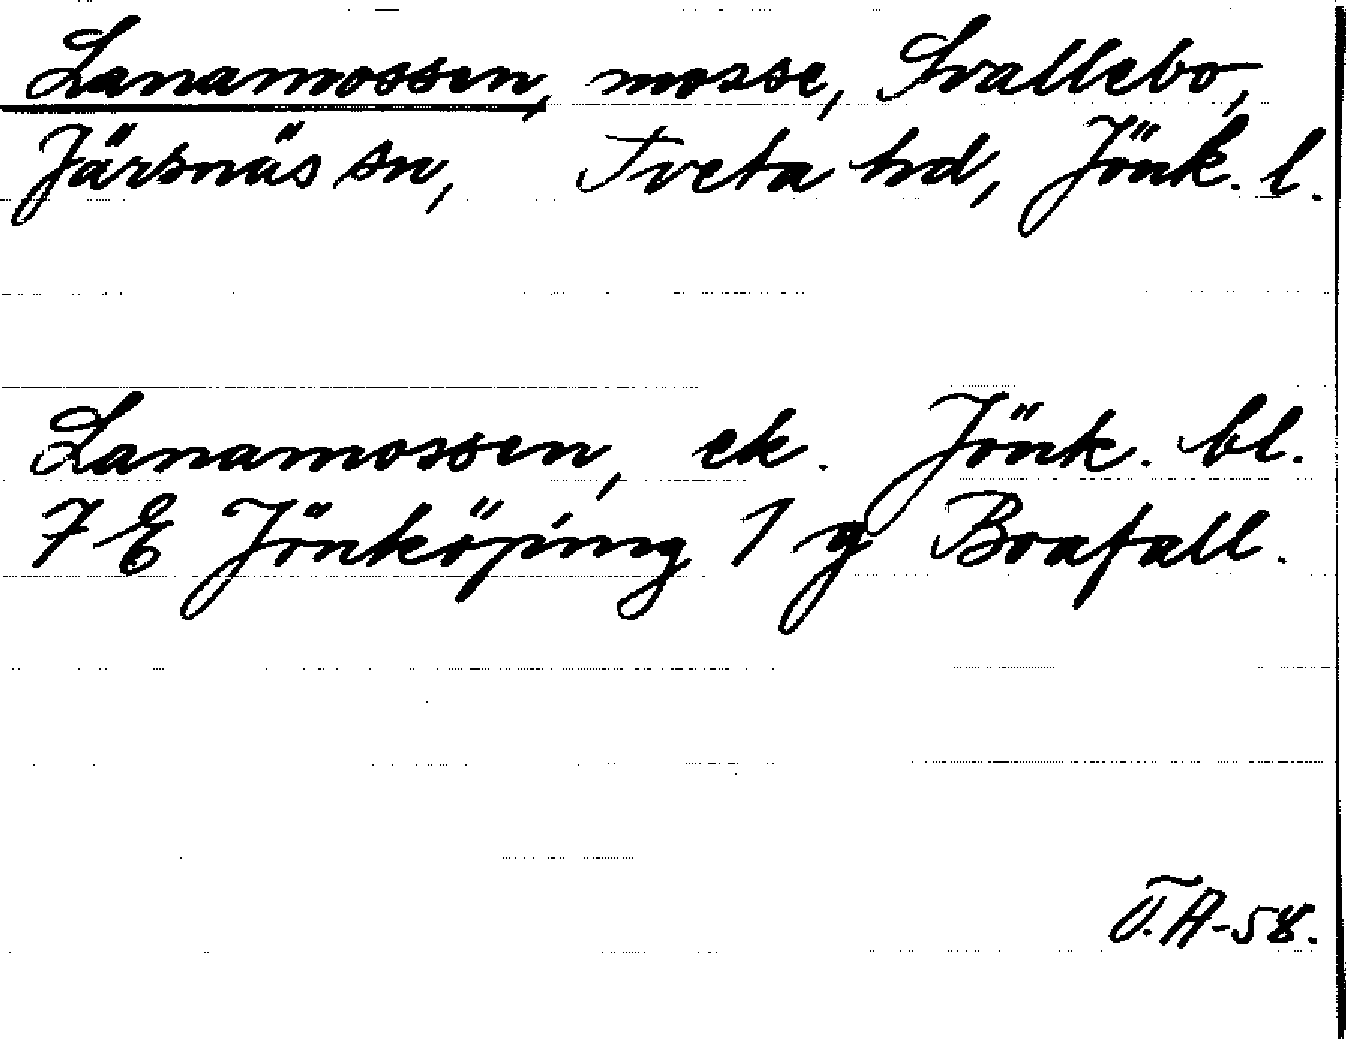 Lanamossen, mosse, Svallebo,
Järsnäs sn, Tveta hd, Jönk. l.
Lanamossen, ek. Jönk. bl.
7 E Jönköping 1 g Boafall.
T.A-58.